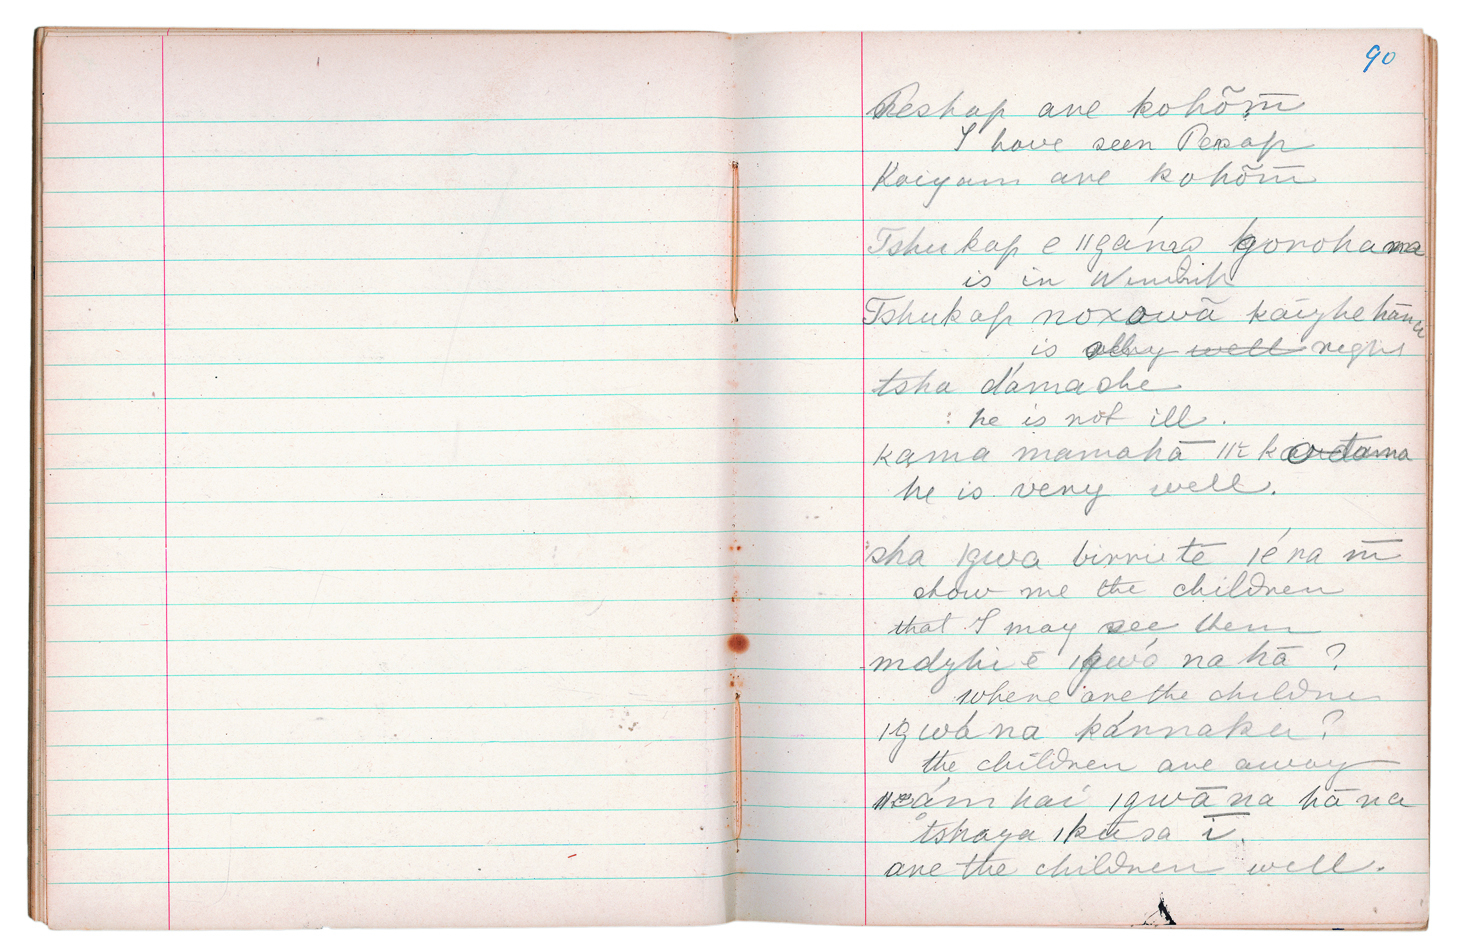 90
Peshap are kohõm̄
I have seen Pesap
Kaiyam are kohõm̄
Tshukap e ǁgáms
is in
Tshukap noxowā kaighe hāna
is alby ~~well~~ right
tsha dámashe
: he is not ill.
kama mamahā
he is very well.
sha ǀgwa birrie tē ǀéna m̄
show me the children
that I may see them
ē ǀgwá na hā ?
where are the children
ǀgwá na kánnaku ?
the children are away
hai ǀgwā na hā na
tshaya ǀkūsa ī.
are the children well.